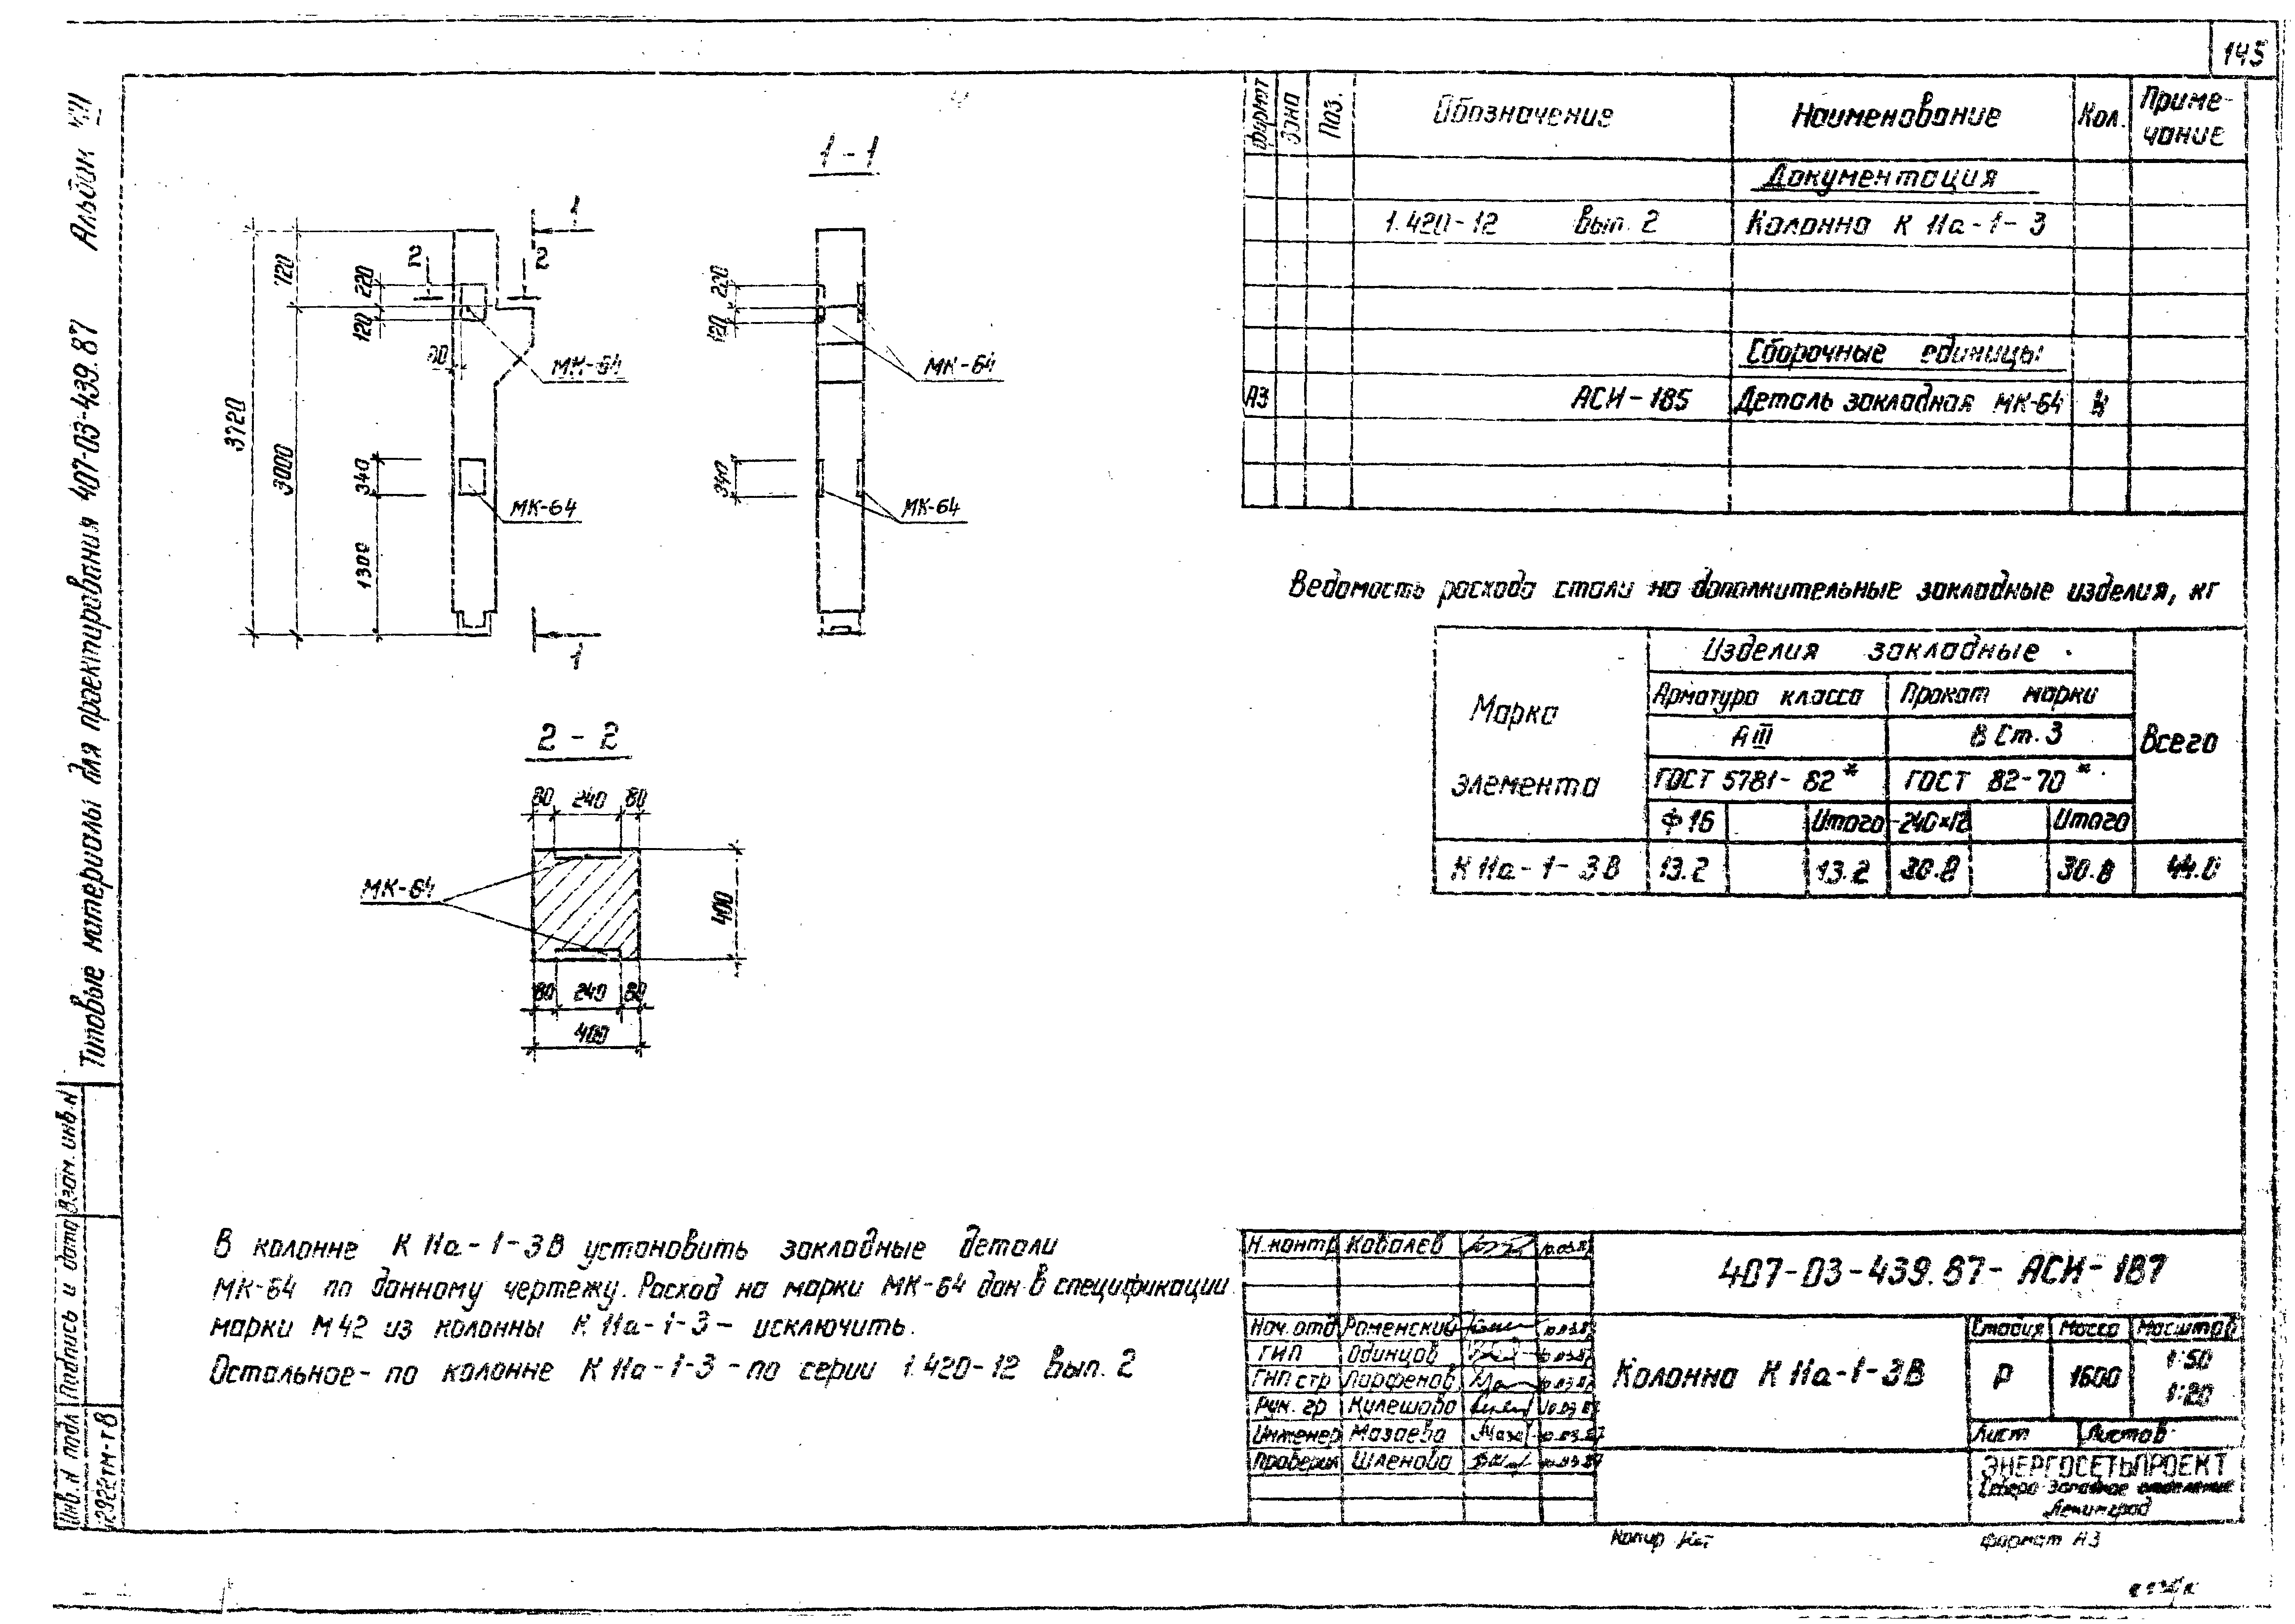 145
Альбом VII
Типовые материалы для проектирования 407-03-439.87
1-1
1
2 2
720
220
120
80
МК-64
3720
3000
340
МК-64
1300
1
220
120
МК-64
340
МК-64
2-2
80 240 80
МК-64
400
80 240 80
400
Формат Зона Поз. Обозначение Наименование Кол. Приме-
чание
Документация
1.420-12 Вып. 2 Колонна К 11а-1-3
Сборочные единицы
А3 АСИ-185 Деталь закладная МК-64 4
Ведомость расхода стали на дополнительные закладные изделия, кг
Марка
элемента
Изделия закладные
Арматура класса Прокат марки
АIII В Ст.3 Всего
ГОСТ 5781-82* ГОСТ 82-70*
Ф16 Итого -240×12 Итого
К 11а-1-3В 13.2 13.2 30.8 30.8 44.0
В колонне К 11а-1-3В установить закладные детали
МК-64 по данному чертежу. Расход на марки МК-64 дан в спецификации
марки М42 из колонны К 11а-1-3 - исключить.
Остальное - по колонне К 11а-1-3 - по серии 1.420-12 Вып. 2
Н.контр Ковалев 10.03.87
Нач.отд Роменский 10.03.87
ГИП Одинцов 10.03.87
ГИП стр Парфенов 10.03.87
Рук. гр Кулешова 10.03.87
Инженер Мазаева 10.03.87
Проверил Шленова 10.03.87
407-03-439.87-АСИ-187
Колонна К 11а-1-3В
Стадия Масса Масштаб
Р 1600 1:50
1:20
Лист Листов
ЭНЕРГОСЕТЬПРОЕКТ
Северо-Западное отделение
Ленинград
Копир
Формат А3
Взам. инв.N
Подпись и дата
Инв.N подл
12922тм-т8